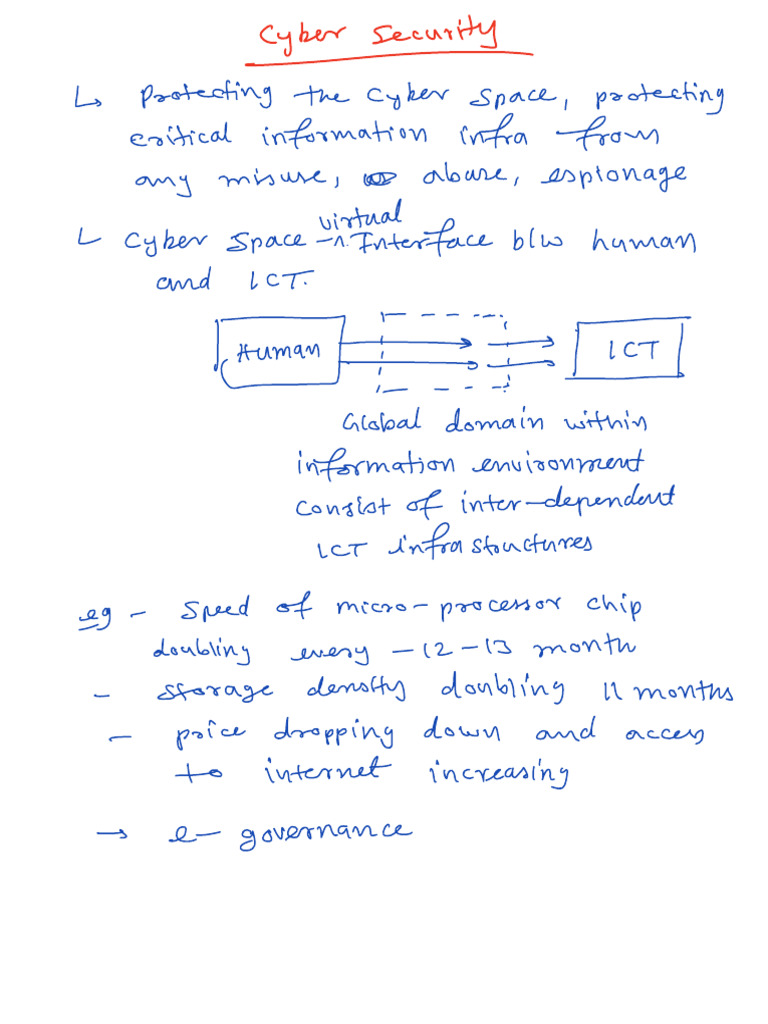 Cyber Security
↳ Protecting the Cyber Space, protecting
critical information infra from
any misuse, abuse, espionage
virtual
↳ Cyber Space – ^ Interface b/w human
and ICT.
Human
ICT
Global domain within
information environment
consist of inter-dependent
ICT infrastructures
eg – Speed of micro-processor chip
doubling every – 12 – 13 month
– storage density doubling 11 months
– price dropping down and access
to internet increasing
→ e-governance